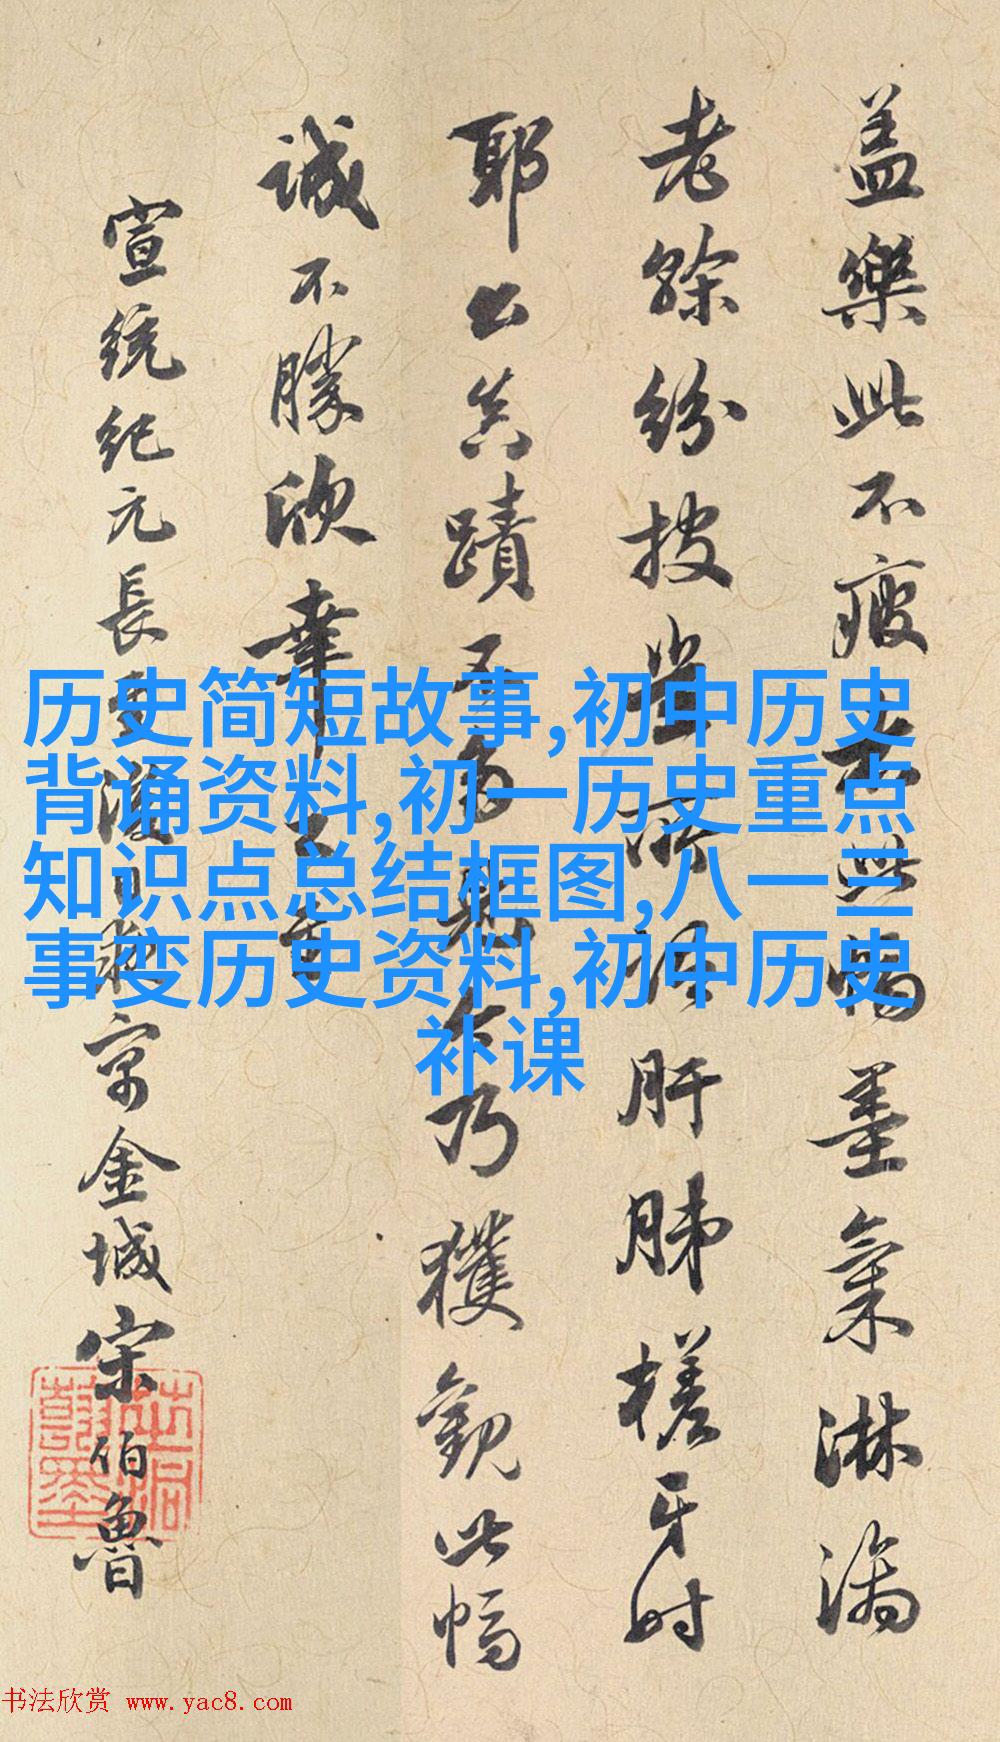 盖樂此不疲
墨氣淋漓
老餘紛披
肝肺槎牙时
耶公真蹟
乃獲觀此幅
誠不勝欣幸
宣統紀元長
京金城宋伯魯
历史简短故事,初中历史
背诵资料,初一历史重点
知识点总结框图,八一三
事变历史资料,初中历史
补课
书法欣赏 www.yac8.com